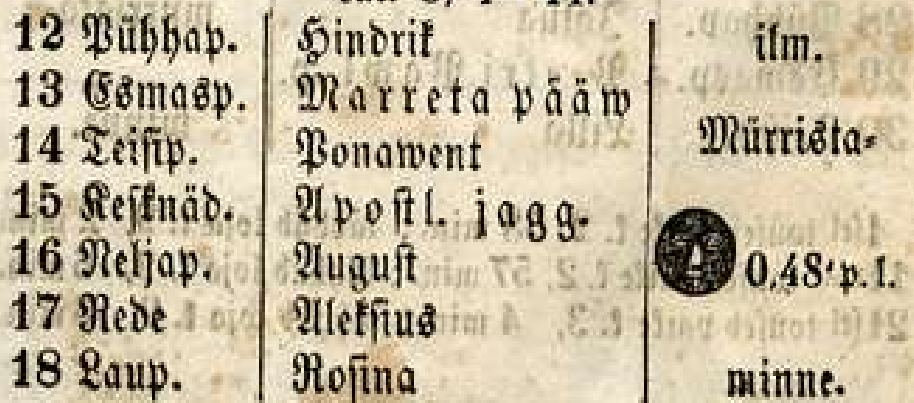 12 Pühhap. Hindrik ilm.
13 Esmasp. Marreta pääw
14 Teisip. Ponawent Mürrista-
15 Kesknäd. Apostl. jagg.
16 Neljap. August 0,48' p. l.
17 Rede Aleksius
18 Laup. Rosina minne.